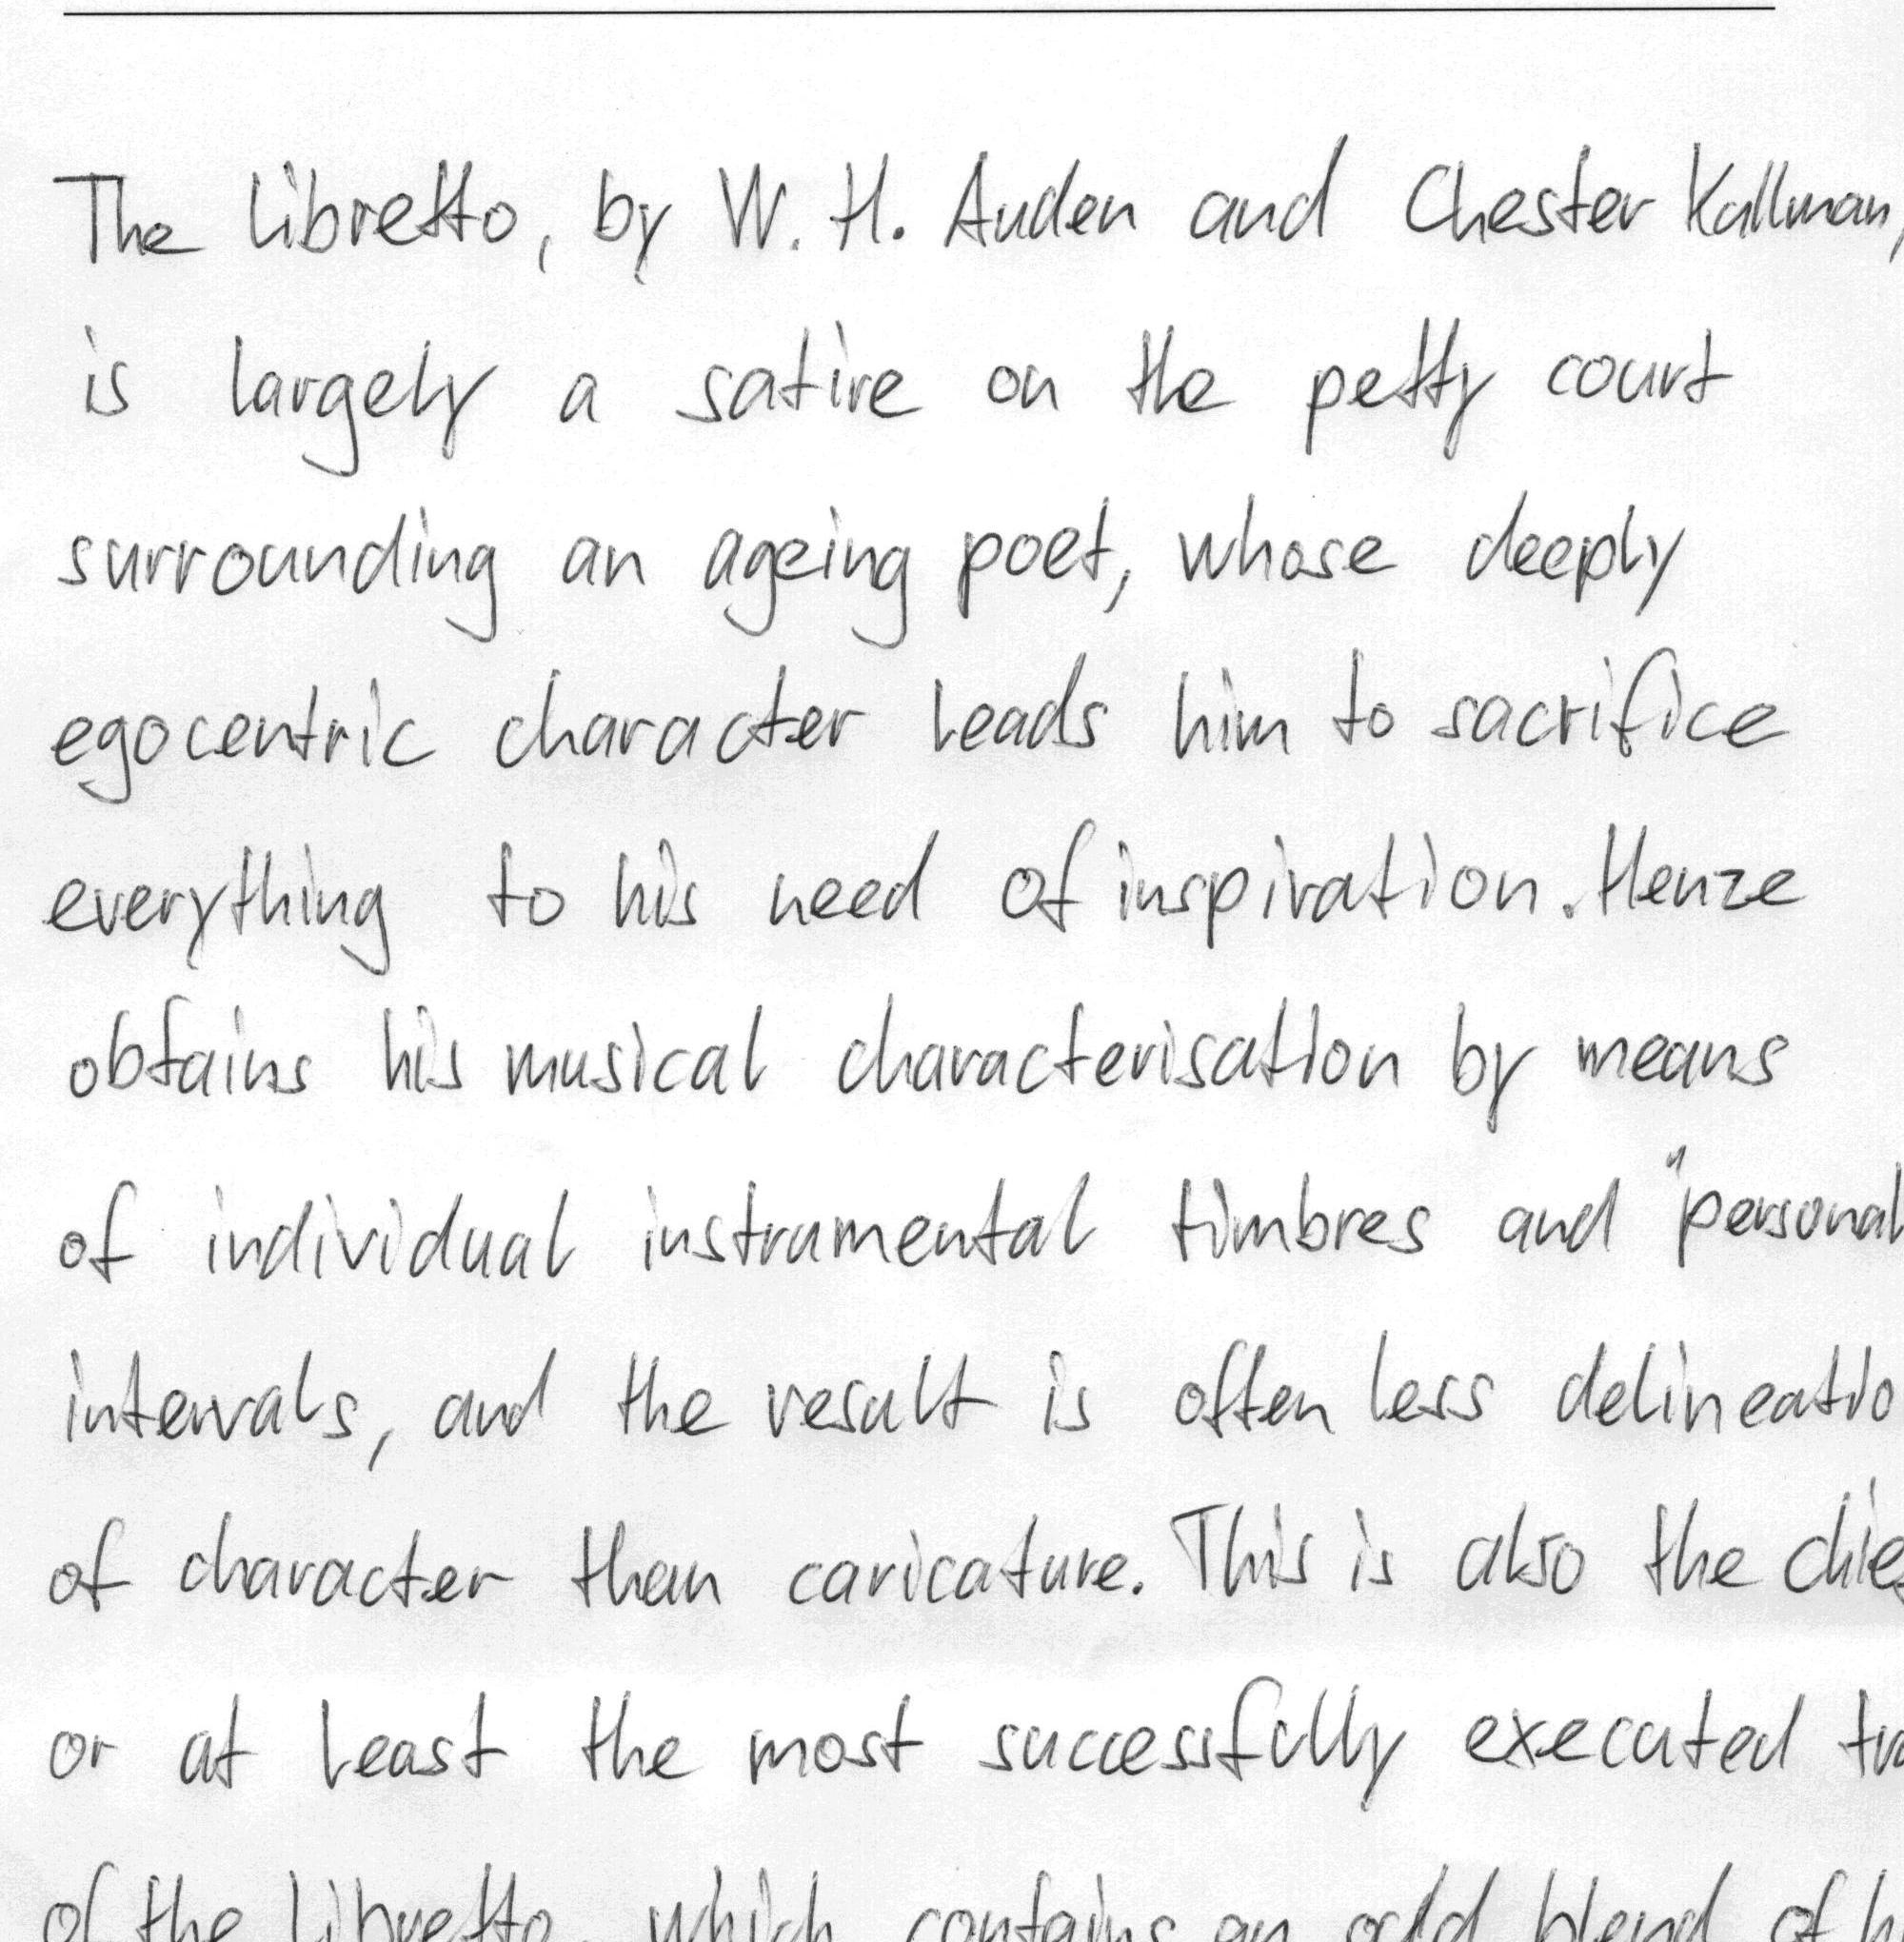 The libretto, by W. H. Auden and Chester Kallman,
is largely a satire on the petty court
surrounding an ageing poet, whose deeply
egocentric character leads him to sacrifice
everything to his need of inspiration. Henze
obtains his musical characterisation by means
of individual instrumental timbres and "personal
intervals, and the result is often less delineatio
of character than caricature. This is also the
or at least the most successfully executed
of the libretto, which contains an odd blend of